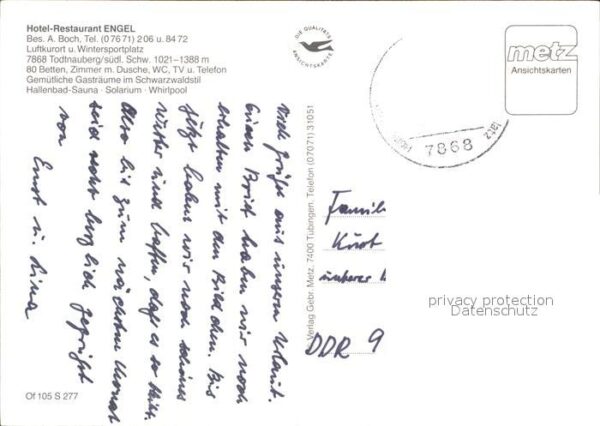 Hotel-Restaurant ENGEL
Bes. A. Boch, Tel. (0 76 71) 2 06 u. 84 72
Luftkurort u. Wintersportplatz
7868 Todtnauberg/südl. Schw. 1021–1388 m
80 Betten, Zimmer m. Dusche, WC, TV u. Telefon
Gemütliche Gasträume im Schwarzwaldstil
Hallenbad-Sauna · Solarium · Whirlpool
DIE QUALITÄTS
ANSICHTSKARTE
metz
Ansichtskarten
7868
Viele Grüße aus unserem Urlaub.
Euren Brief haben wir noch
erhalten mit den Bildchen. Bis
jetzt haben wir noch schönes
Wetter und hoffen, daß es so bleibt.
Also bis zum nächsten Monat
seid recht herzlich gegrüßt
von
Ernst u. Lina
Verlag Gebr. Metz, 7400 Tübingen, Telefon (07071) 31051
Famili
Kurt
unterer
DDR 9
privacy protection
Datenschutz
Of 105 S 277